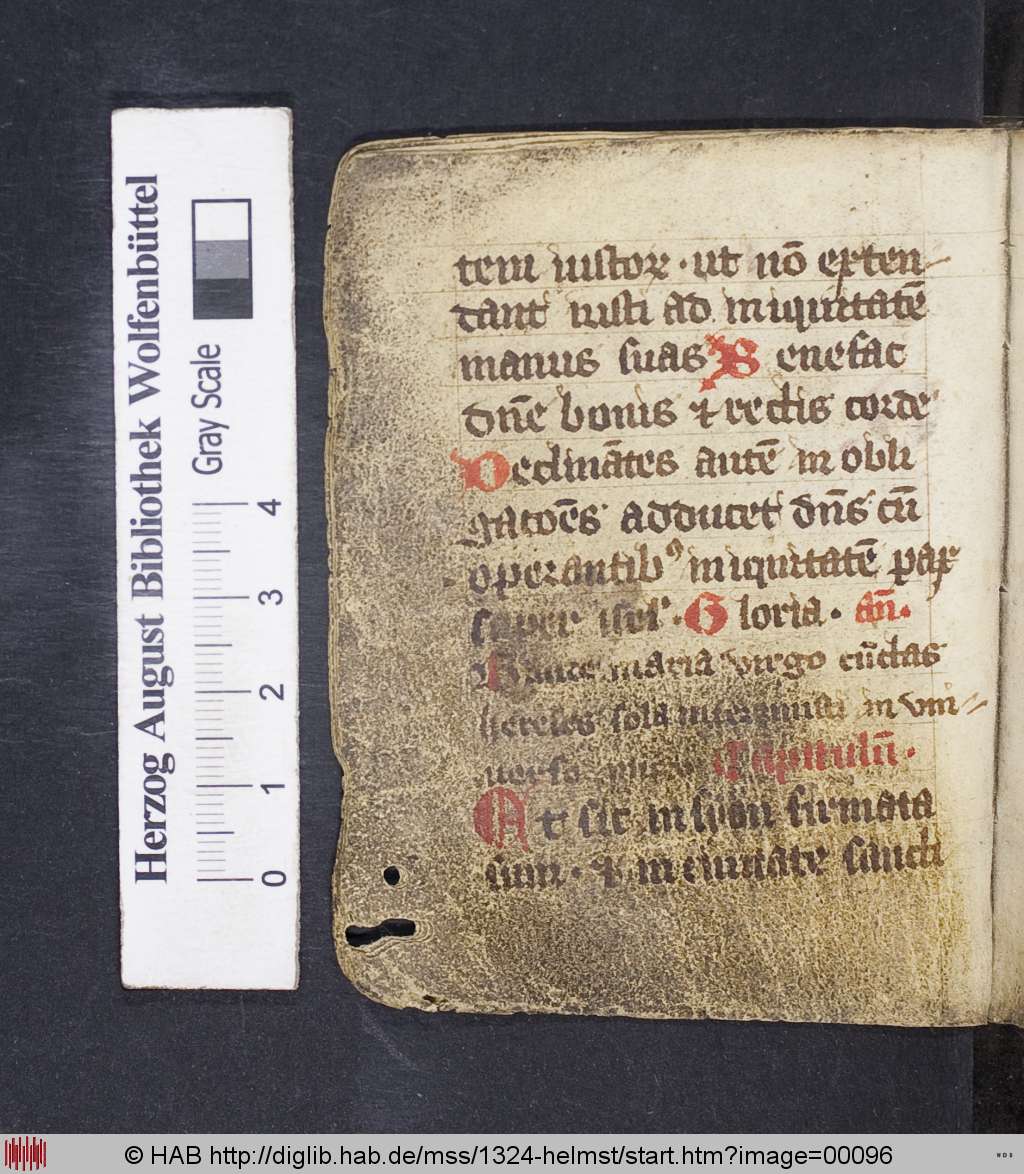 Herzog August Bibliothek Wolfenbüttel
Gray Scale
0 1 2 3 4
tem iustor · ut nō exten
dant iusti ad iniquitatē
manus suas Benefac
dn̄e bonis ⁊ rectis corde
Declinātes autē in obli
gacōēs adducet dn̄s cū
operantibꝰ iniquitatē pax
super isrl · Gloria · an̄.
maria virgo cūctas
hereses sola interemisti in vni
Capitulū.
Et sic in syon firmata
sum · ⁊ in ciuitate sancti
© HAB http://diglib.hab.de/mss/1324-helmst/start.htm?image=00096